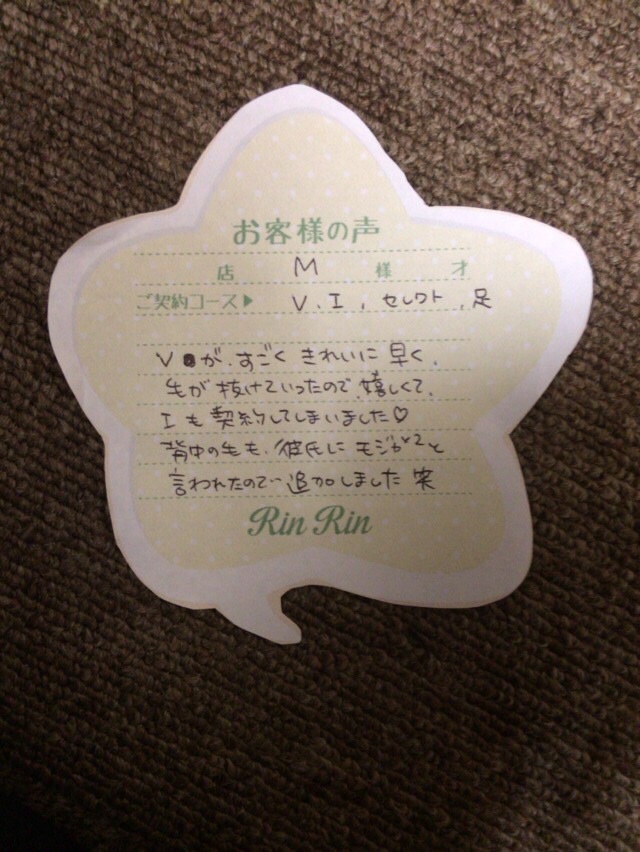 お客様の声
店 M 様 才
ご契約コース▶ V、I、セレクト、足
Vが、すごく きれいに 早く、
毛が 抜けていったので、嬉しくて、
Iも 契約してしまいました♡
背中の毛も、彼氏に モジャモジャと
言われたので 追加しました 笑
Rin Rin